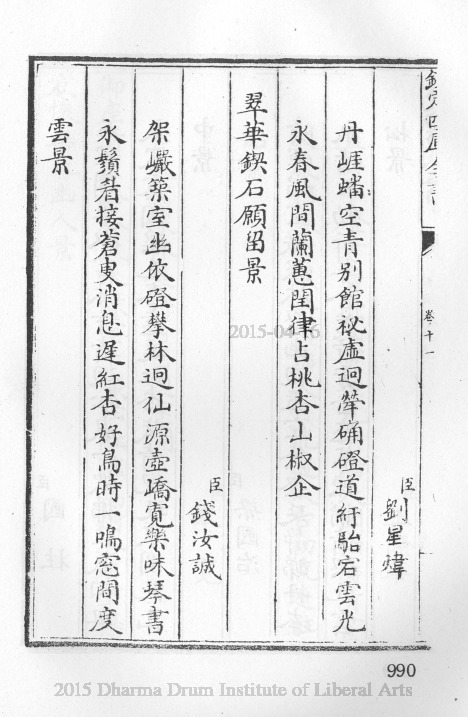 欽定四庫全書
卷十一
臣劉星煒
丹崕蟠空青別館祕虛迥犖确磴道紆駘宕雲光
永春風間蘭蕙閏律占桃杏山椒企
翠華鍥石願留景
臣錢汝誠
架巘築室幽依磴攀林迥仙源壺嶠寬樂味琴書
永鬚莙接蒼叟消息遲紅杏好鳥時一鳴窓間度
雲景
990
2015-04-16
2015 Dharma Drum Institute of Liberal Arts